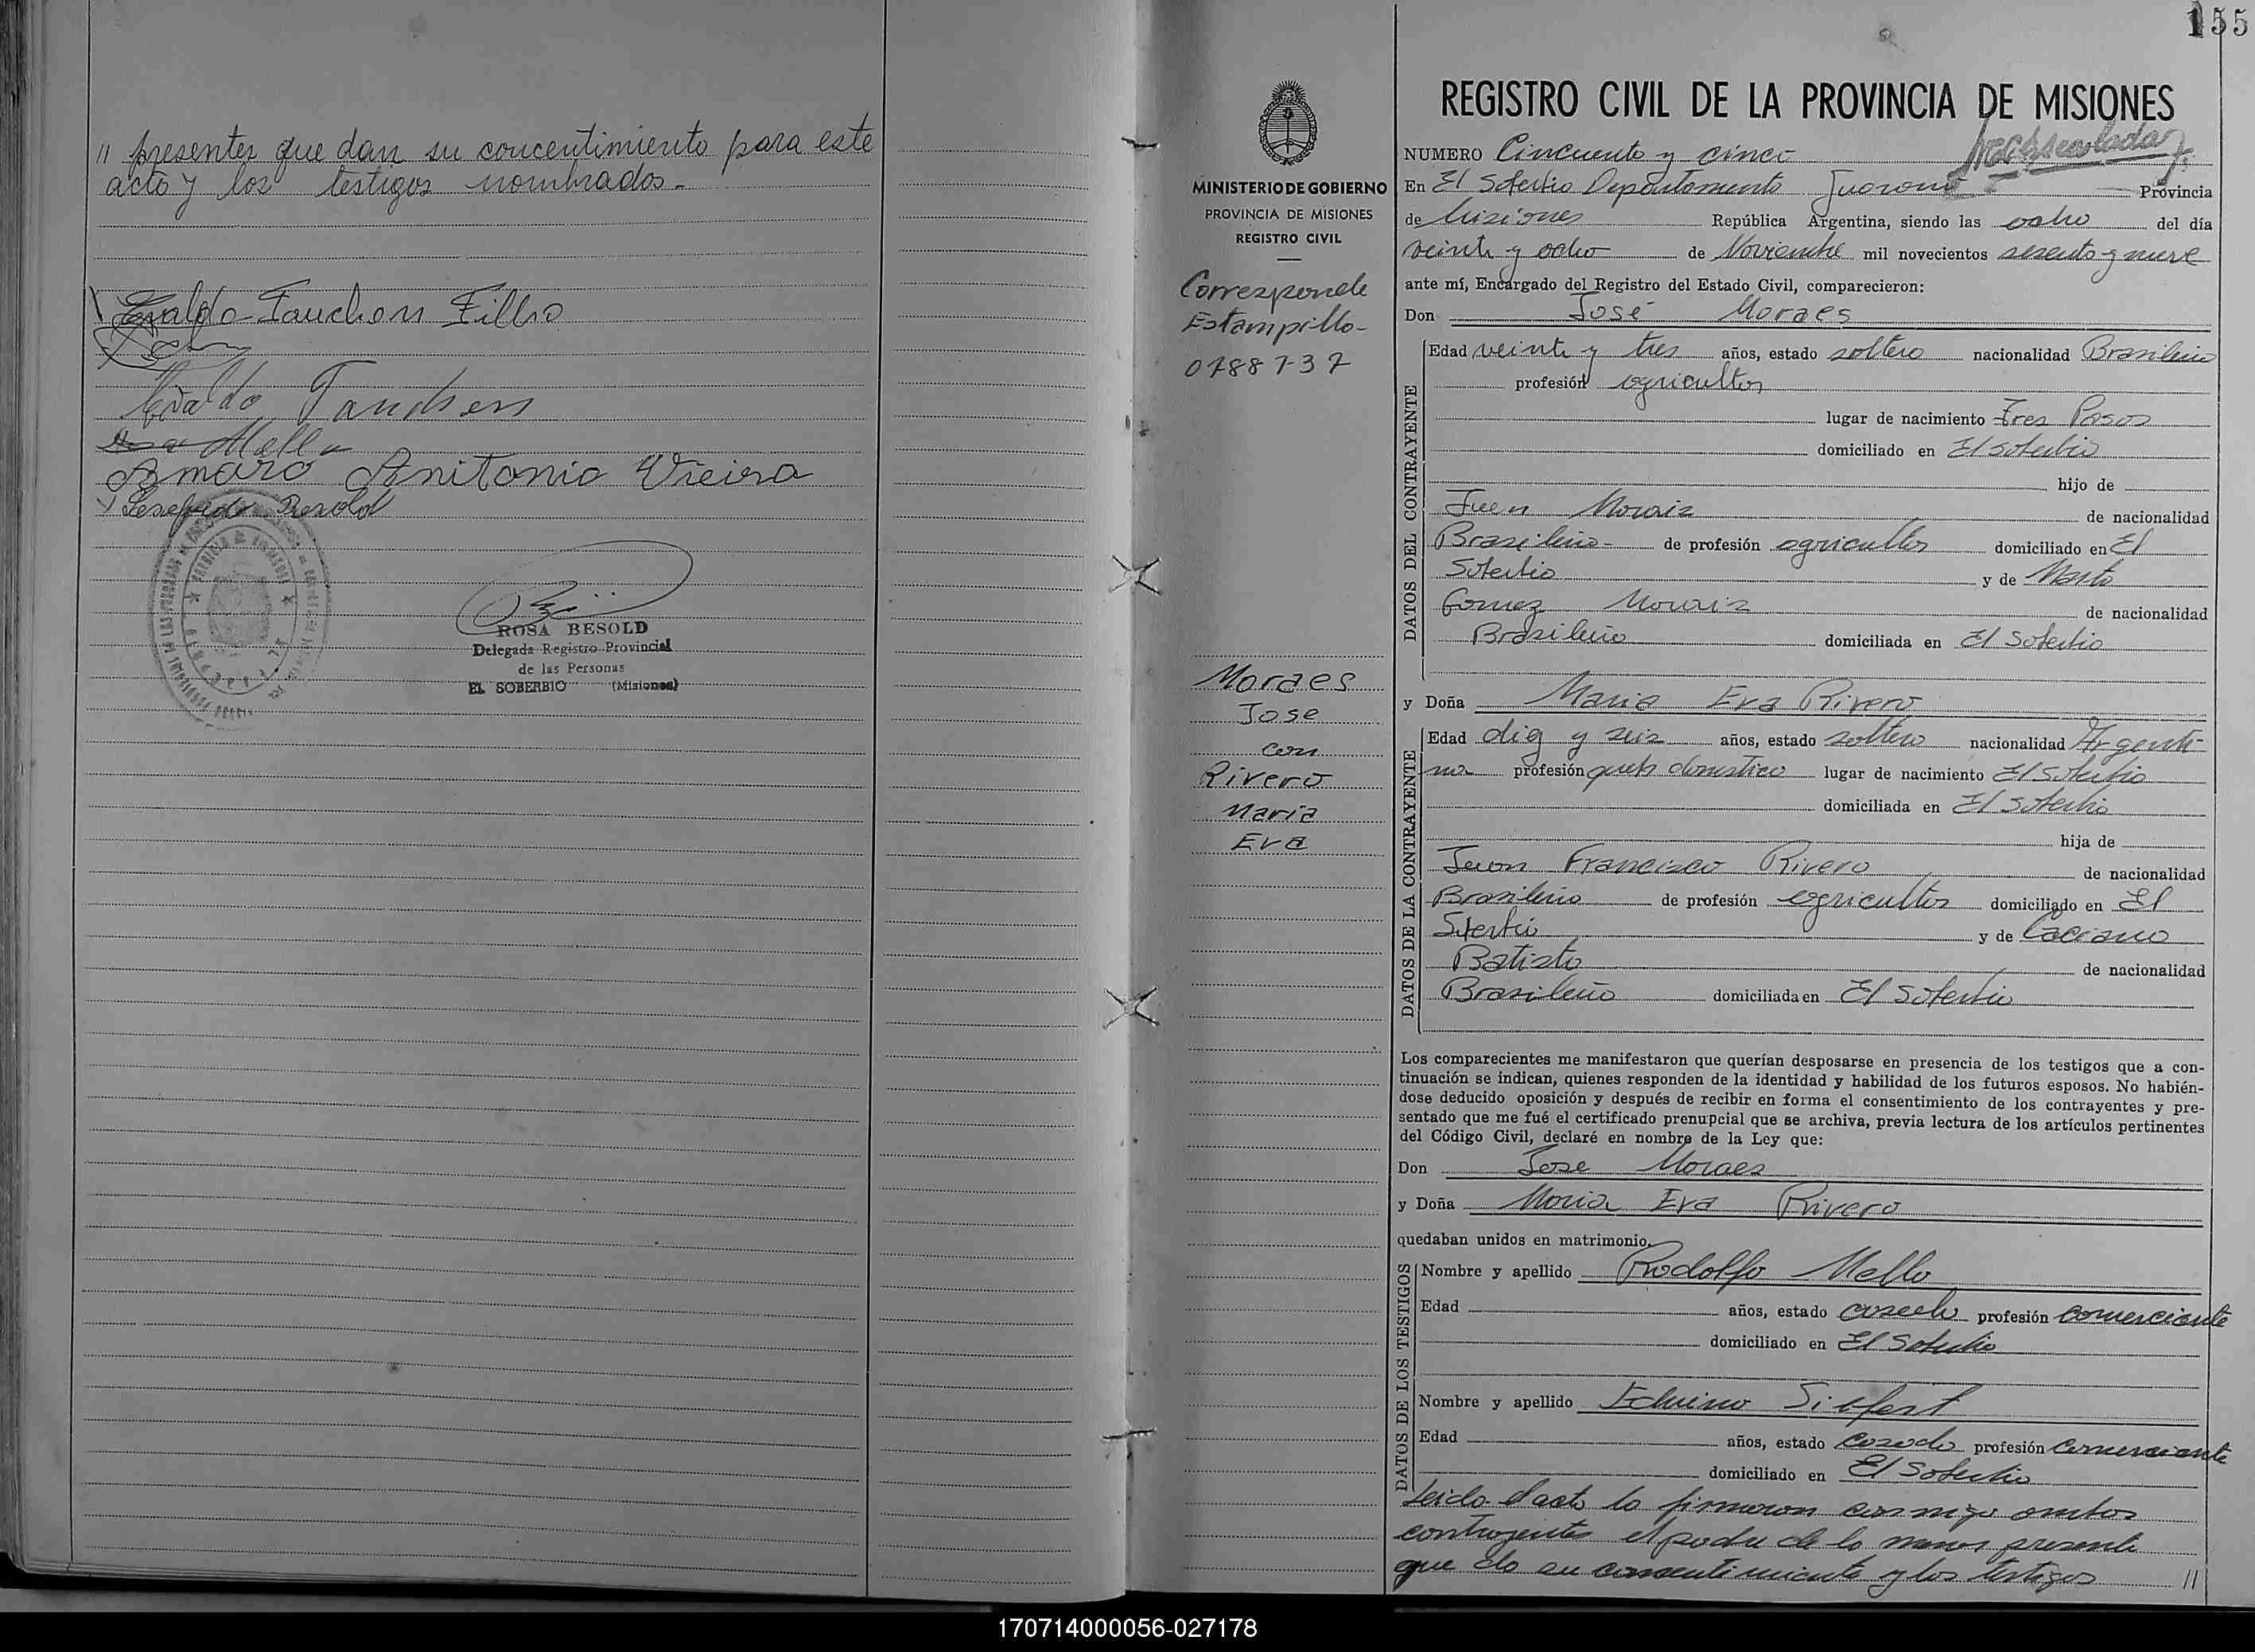 " presentes que dan su concentimiento para este
acto y los testigos nombrados.-
Tauchen Filho
Tauchen
Mello
Amaro Anitonio Vieira
Besold
ROSA BESOLD
Delegada Registro Provincial
de las Personas
EL SOBERBIO (Misiones)
MINISTERIO DE GOBIERNO
PROVINCIA DE MISIONES
REGISTRO CIVIL
Corresponde
Estampilla-
0788737
Moraes
Jose
con
Rivero
Maria
Eva
155
REGISTRO CIVIL DE LA PROVINCIA DE MISIONES
NUMERO Cincuenta y cinco
En El Soberbio Departamento Guarani Provincia
de Misiones República Argentina, siendo las ocho del día
veinte y ocho de Noviembre mil novecientos sesenta y nueve
ante mí, Encargado del Registro del Estado Civil, comparecieron:
Don José Moraes
DATOS DEL CONTRAYENTE
Edad veinte y tres años, estado soltero nacionalidad Brasileño
profesión agricultor
lugar de nacimiento Tres Pasos
domiciliado en El Soberbio
hijo de
Juan Morais de nacionalidad
Brasileño- de profesión agricultor domiciliado en El
Soberbio y de Marta
Gomez Morais de nacionalidad
Brasileña domiciliada en El Soberbio
y Doña Maria Eva Rivero
DATOS DE LA CONTRAYENTE
Edad diez y seis años, estado soltera nacionalidad Argenti-
na profesión queh domestico lugar de nacimiento El Soberbio
domiciliada en El Soberbio
hija de
Juan Francisco Rivero de nacionalidad
Brasileño de profesión agricultor domiciliado en El
Soberbio y de
Batista de nacionalidad
Brasileña domiciliada en El Soberbio
Los comparecientes me manifestaron que querían desposarse en presencia de los testigos que a con-
tinuación se indican, quienes responden de la identidad y habilidad de los futuros esposos. No habién-
dose deducido oposición y después de recibir en forma el consentimiento de los contrayentes y pre-
sentado que me fué el certificado prenupcial que se archiva, previa lectura de los artículos pertinentes
del Código Civil, declaré en nombre de la Ley que:
Don Jose Moraes
y Doña Maria Eva Rivero
quedaban unidos en matrimonio.
DATOS DE LOS TESTIGOS
Nombre y apellido Rodolfo Mello
Edad años, estado casado profesión comerciante
domiciliado en El Soberbio
Nombre y apellido Siefert
Edad años, estado casado profesión comerciante
domiciliado en El Soberbio
Leido el acto lo firmaron conmigo ambos
contrayentes el padre de la menor presente
que da su consentimiento y los testigos //
170714000056-027178